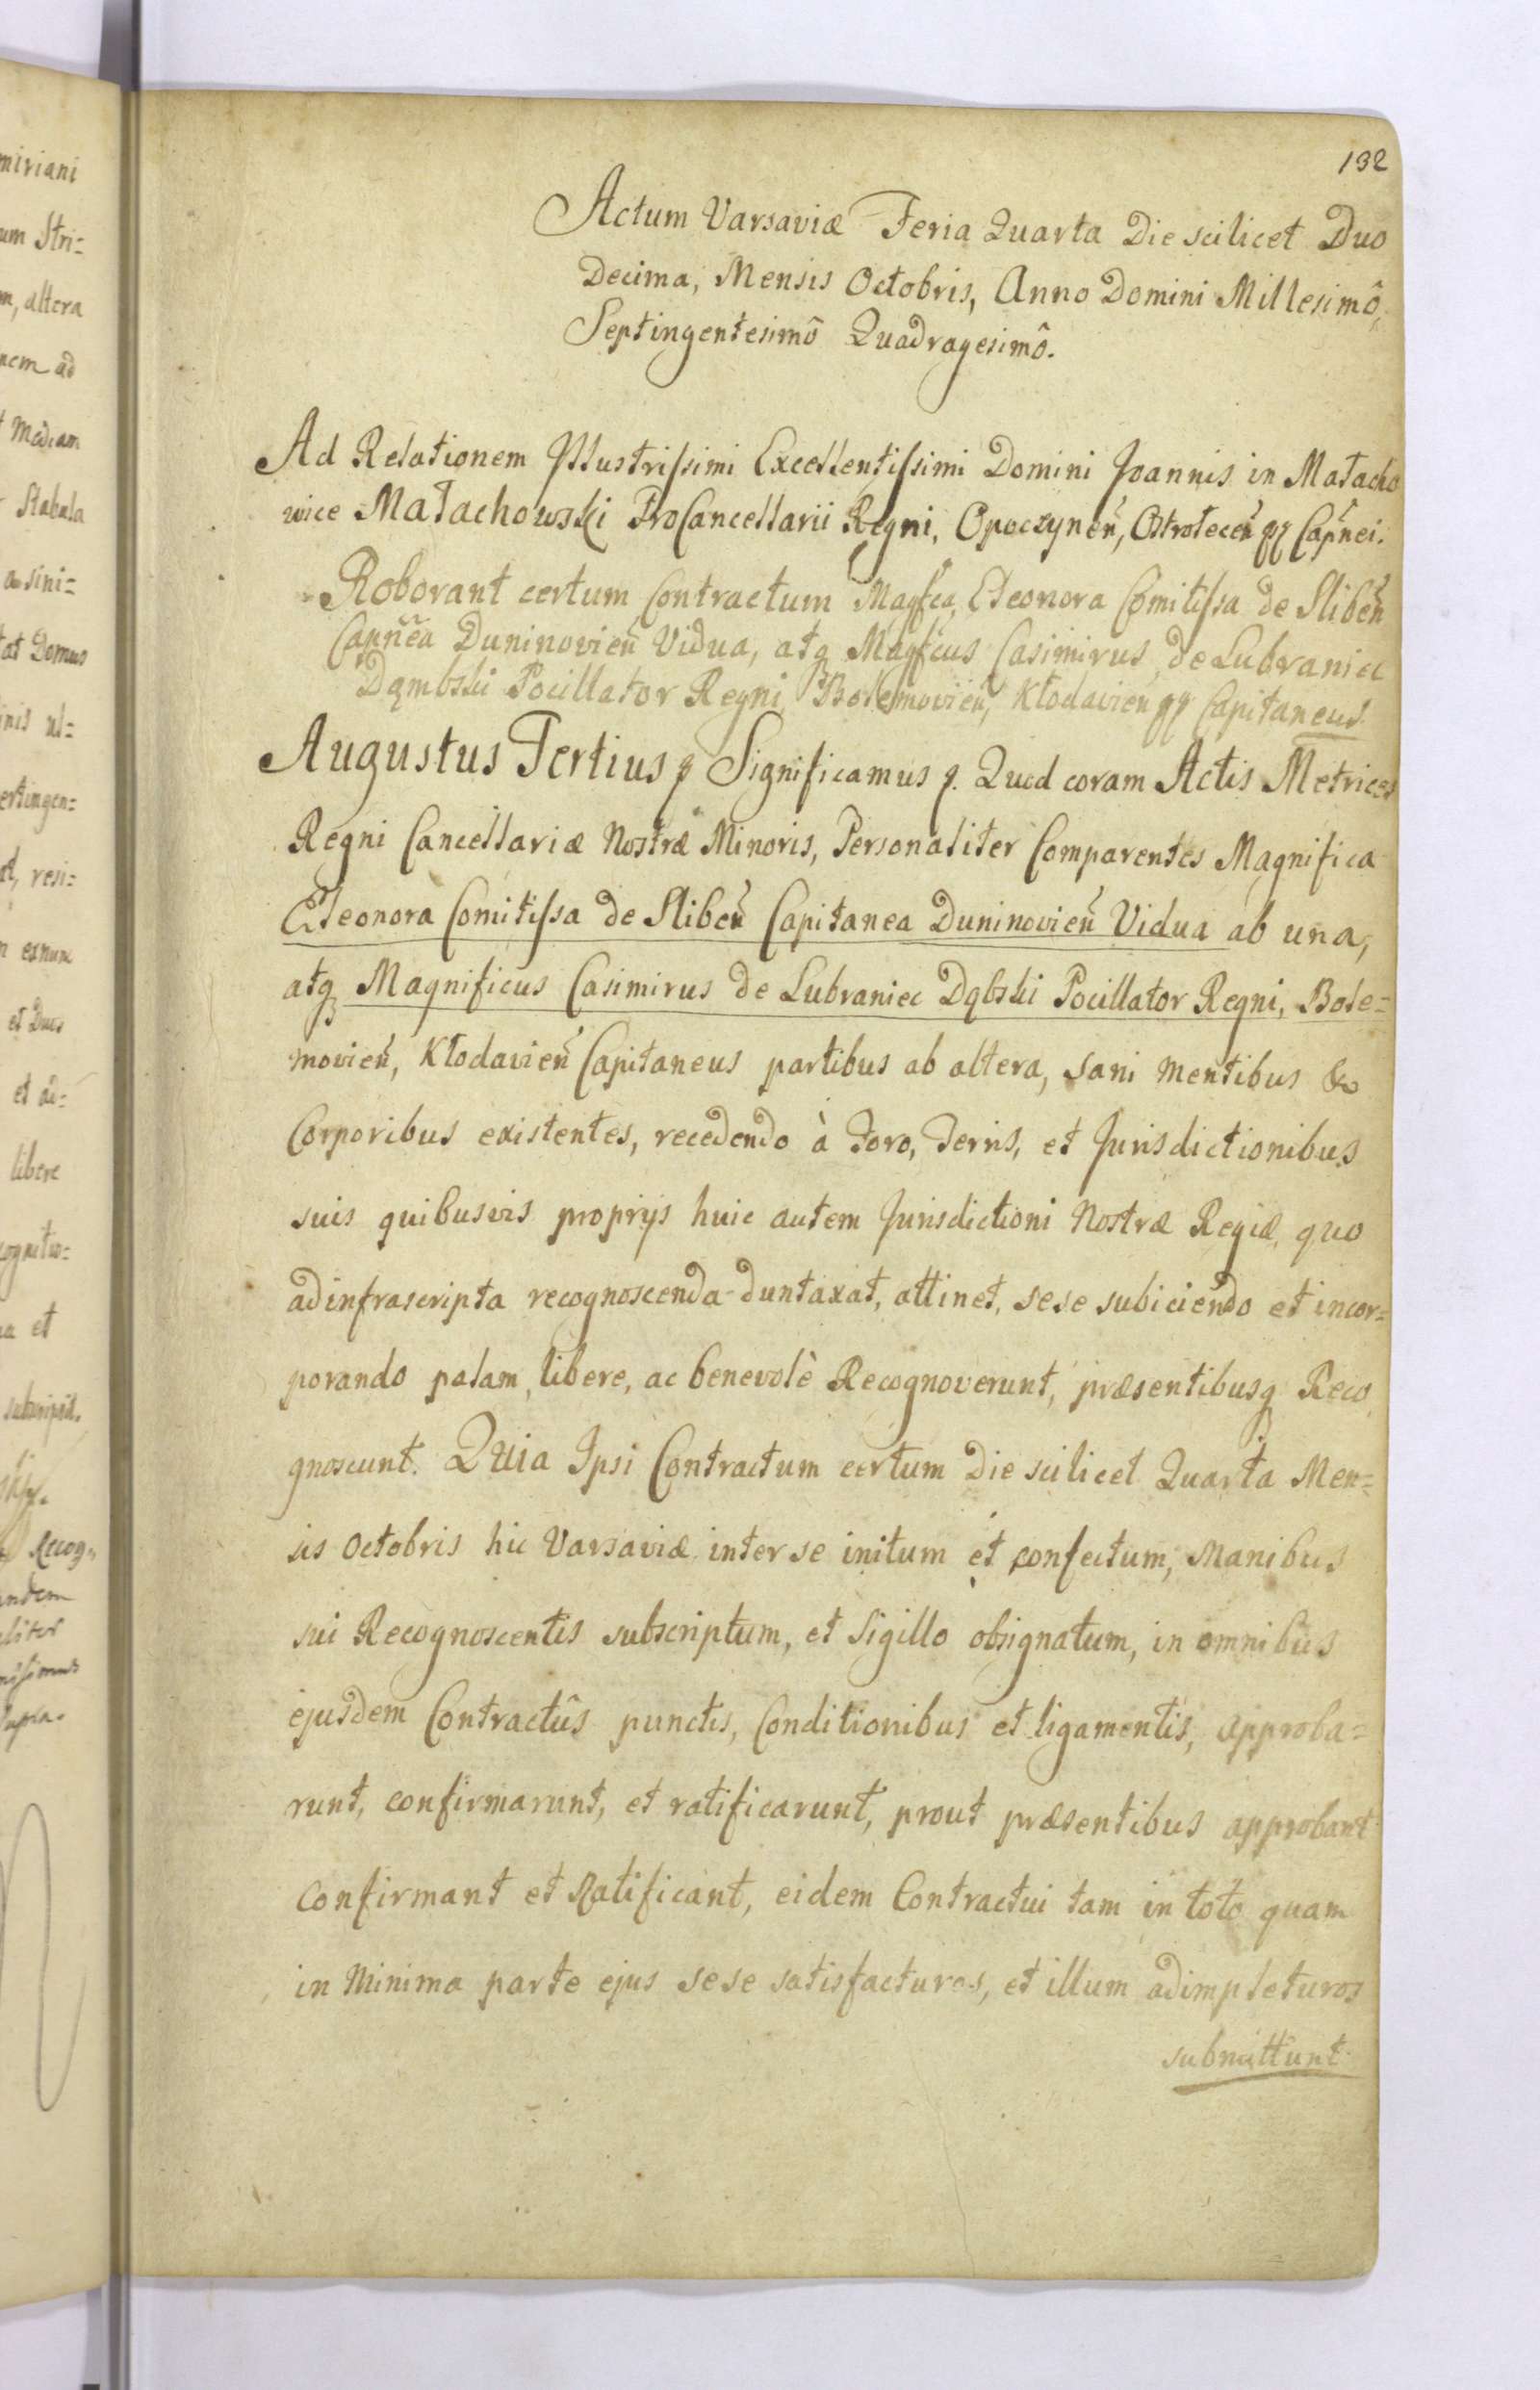 132
Actum Varsaviæ Feria Quarta Die scilicet Duo
Decima, Mensis Octobris, Anno Domini Millesimô,
Septingentesimô Quadragesimô.
Ad Relationem Jllustrissimi Excellentissimi Domini Joannis in Małacho
wice Małachowski ProCancellarii Regni, Opoczynen̄, Ostrołecen̄ qq Cap̄nei.
Roborant certum Contractum Magfca Eleonora Comitissa de Sliben̄
Cap̄nea Duninovien̄ Vidua, atq Magfcus Casimirus de Lubraniec
Dąmbski Pocillator Regni, Bolemovien̄, Kłodavien̄ qq Capitaneus.
Augustus Tertius p Significamus p. Quod coram Actis Metrices
Regni Cancellariæ Nostræ Minoris, Personaliter Comparentes Magnifica
Eleonora Comitissa de Sliben̄ Capitanea Duninovien̄ Vidua ab una,
atq Magnificus Casimirus de Lubraniec Dąbski Pocillator Regni, Bole=
movien̄, Kłodavien̄ Capitaneus partibus ab altera, sani mentibus &
Corporibus existentes, recedendo à Foro, Terris, et Jurisdictionibus
suis quibusvis proprijs huic autem Jurisdictioni Nostræ Regiæ, quo
ad infrascripta recognoscenda duntaxat, attinet, sese subiciendo et incor=
porando palam, libere, ac benevolè Recognoverunt, præsentibusq Reco
gnoscunt. Quia Ipsi Contractum certum Die scilicet Quarta Men=
sis Octobris hic Varsaviæ inter se initum et confectum, Manibus
sui Recognoscentis subscriptum, et Sigillo obsignatum, in omnibus
ejusdem Contractûs punctis, Conditionibus et ligamentis, approba=
runt, confirmarunt, et ratificarunt, prout præsentibus approbant
Confirmant et Ratificant, eidem Contractui tam in toto quam
in Minima parte ejus sese satisfacturos, et illum adimpleturos
submittunt
miriani
um Stri=
m, altera
nem ad
Mediam
Stabula
asini=
tat Domus
inis ul=
ertingen=
resi=
et Duc
et ad=
libere
cognitio=
a et